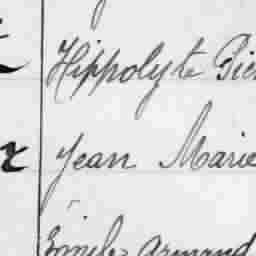 Hippolyte Pier
Jean Marie
Émile Armand